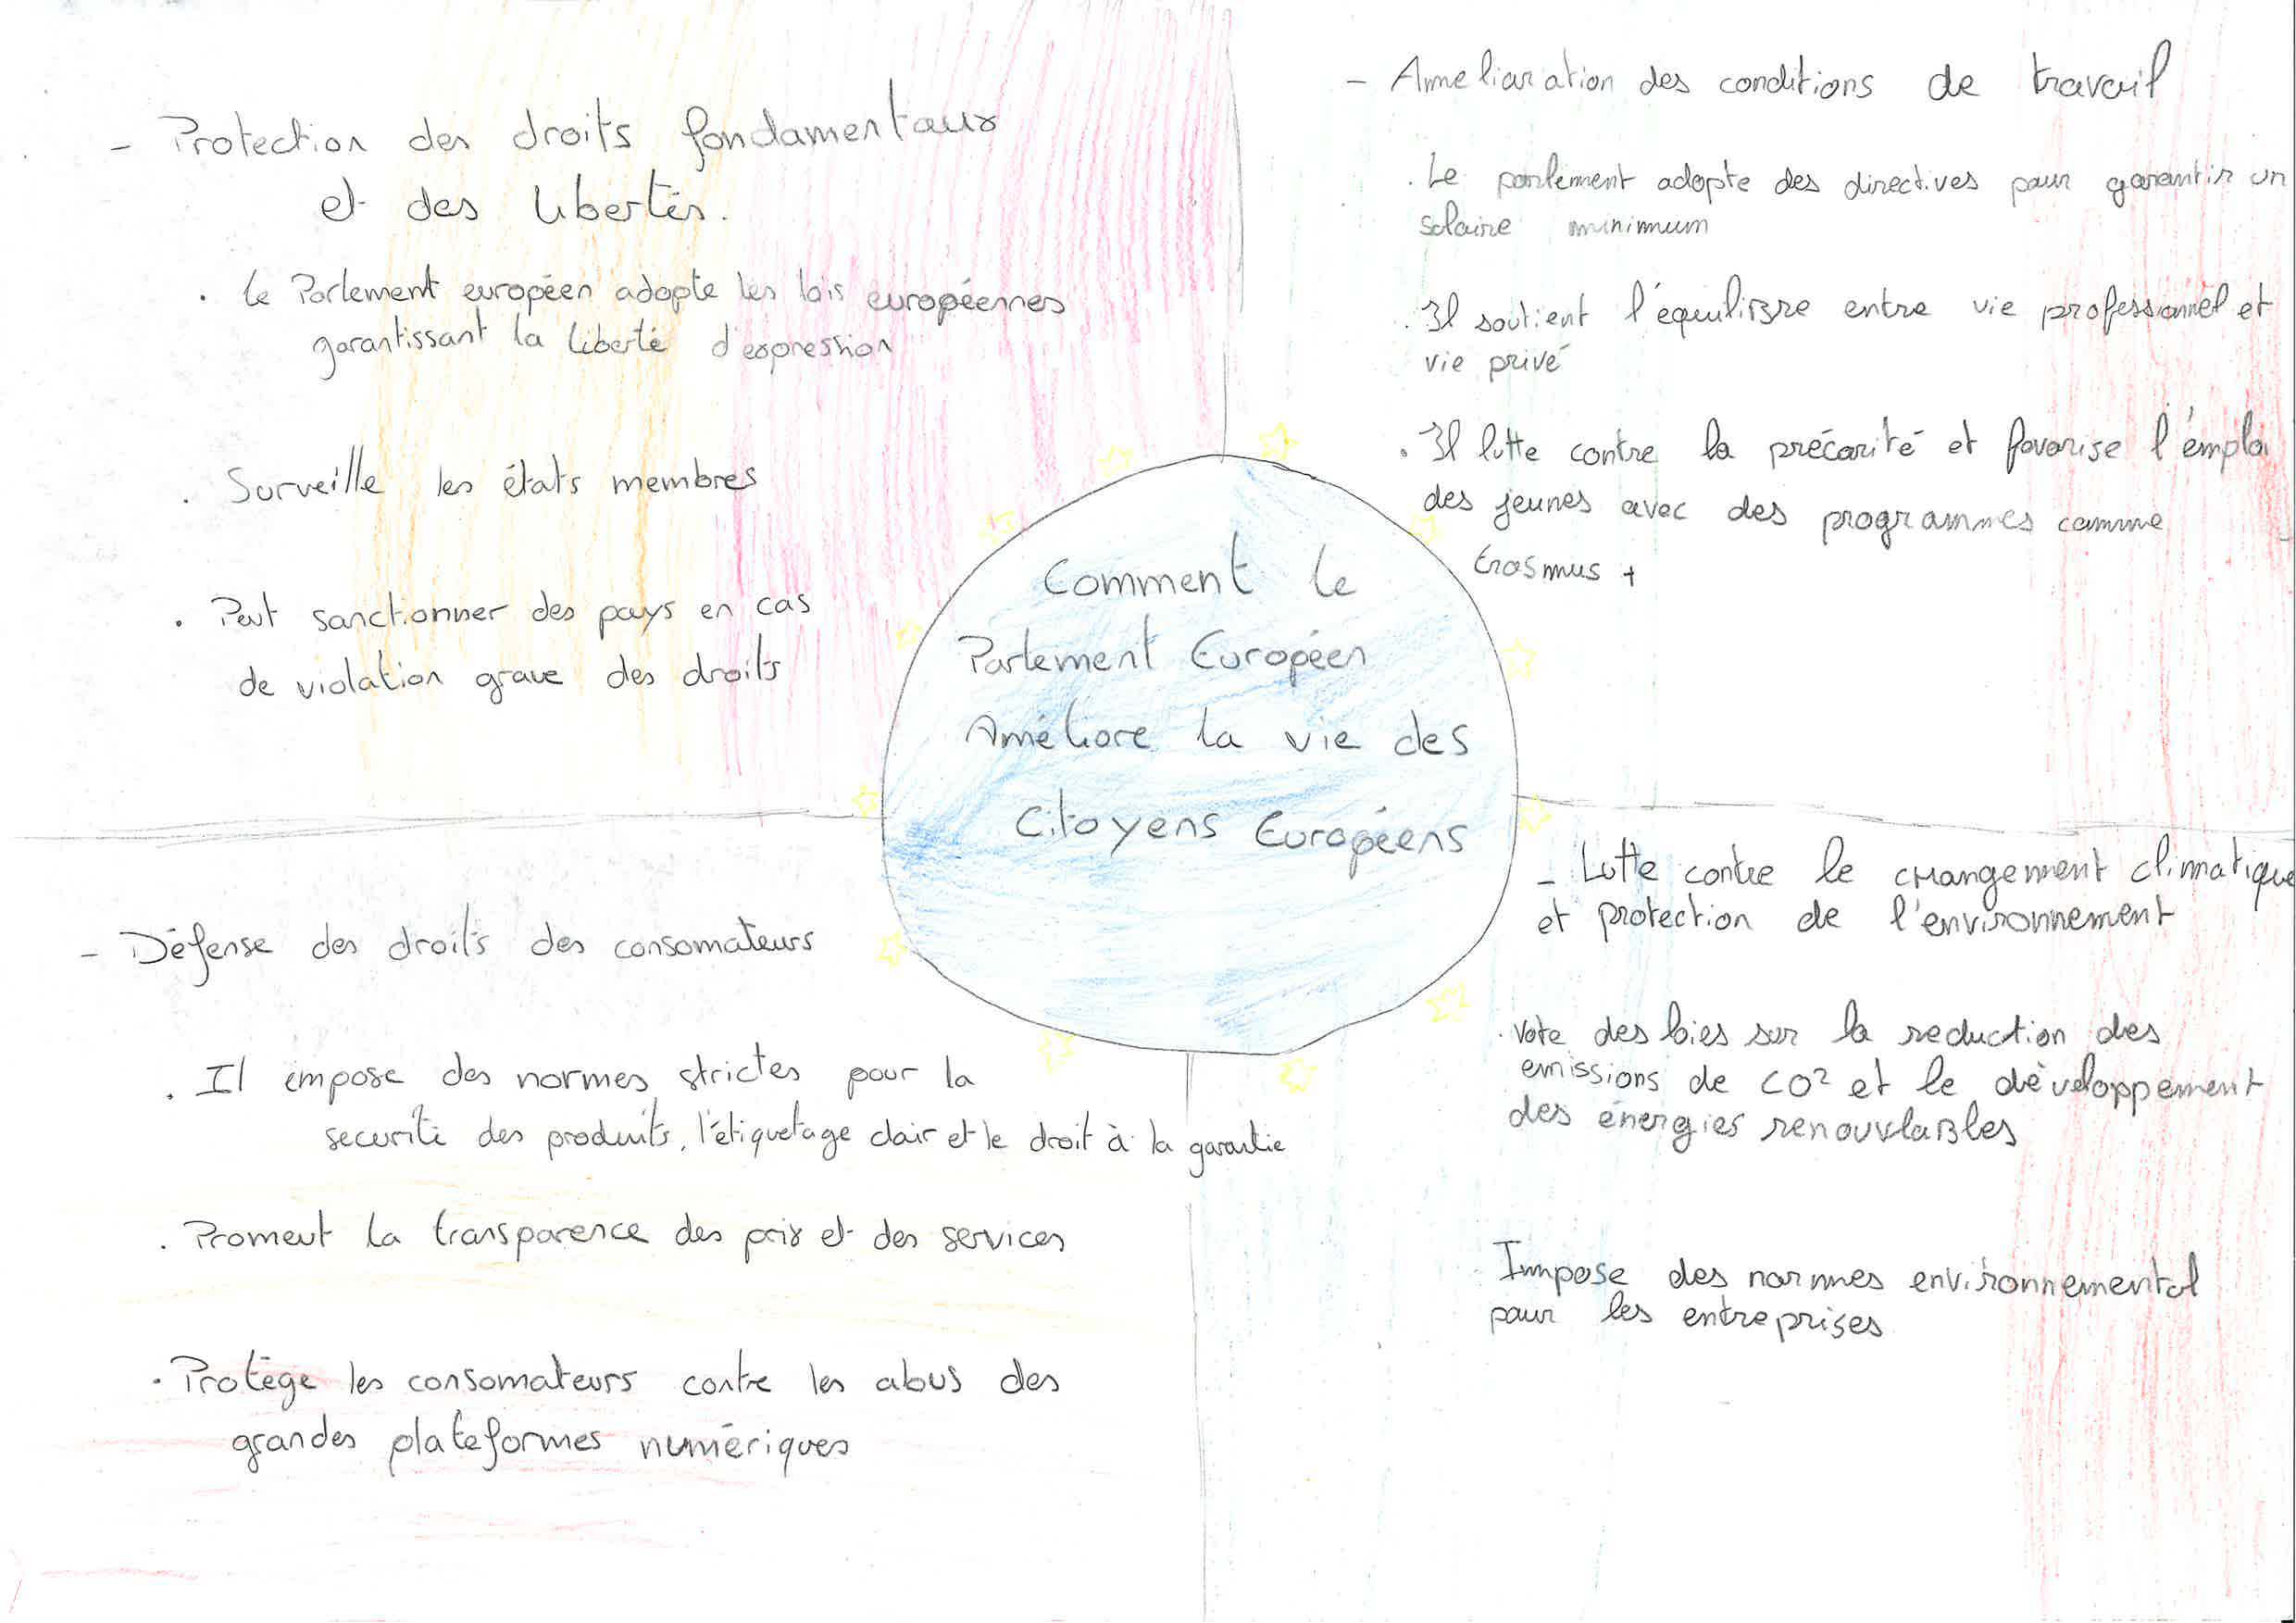 - Protection des droits fondamentaux
et des libertés.
. Le Parlement européen adopte les lois européennes
garantissant la liberté d'expression
. Surveille les états membres
. Peut sanctionner des pays en cas
de violation grave des droits
- Ameliaration des conditions de travail
. Le parlement adopte des directives pour garantir un
salaire minimum
. Il soutient l'équilibre entre vie professionnel et
vie privé
. Il lutte contre la précarité et favorise l'emploi
des jeunes avec des programmes comme
Erasmus +
Comment le
Parlement Européen
Améliore la vie des
Citoyens Européens
- Défense des droits des consomateurs
. Il impose des normes strictes pour la
securité des produits, l'étiquetage clair et le droit à la garantie
. Promeut la transparence des prix et des services
. Protège les consomateurs contre les abus des
grandes plateformes numériques
- Lutte contre le changement climatique
et protection de l'environnement
. Vote des loies sur la reduction des
emissions de CO² et le dèveloppement
des énergies renouvlables
. Impose des normes environnemental
pour les entreprises